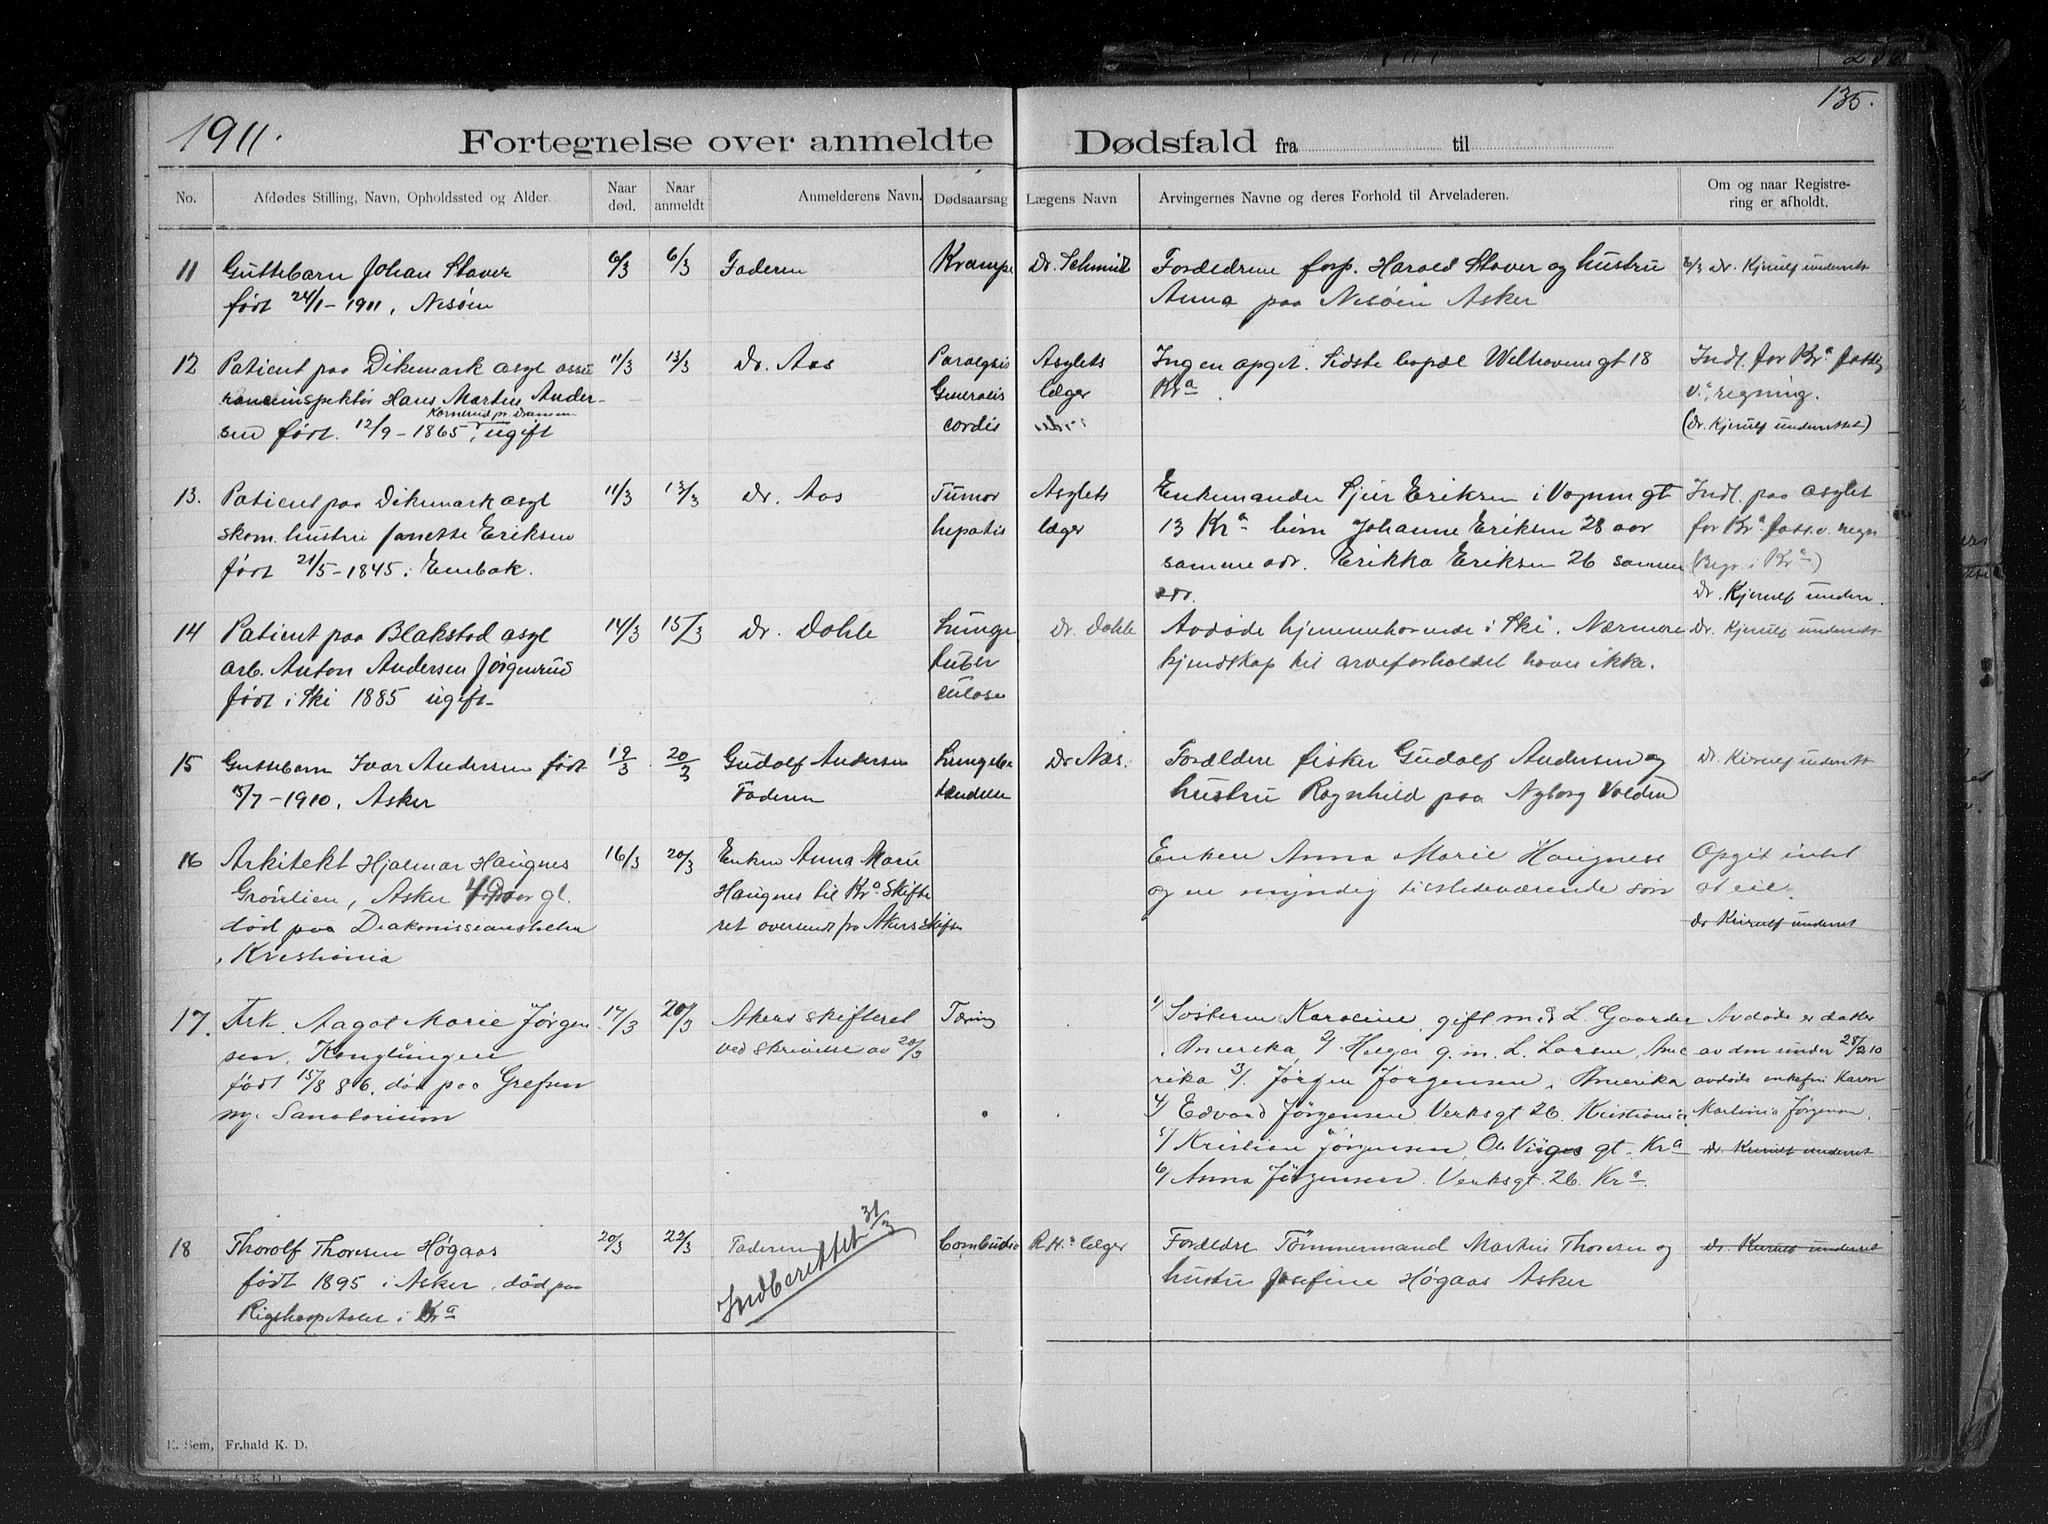 1911.
135.
Fortegnelse over anmeldte Dødsfald fra til
No.
Afdødes Stilling, Navn, Opholdssted og Alder.
Naar død.
Naar anmeldt
Anmelderens Navn.
Dødsaarsag
Lægens Navn
Arvingernes Navne og deres Forhold til Arveladeren.
Om og naar Registrering er afholdt.
11
Guttebarn Johan Staver
født 24/1-1911, Nesøen
6/3
6/3
Faderen
Krampe
Dr. Schmidt
Forældrene forp. Harald Staver og hustru
Anna paa Nesøen Asker
6/3 Dr. Kjerulf underrett
12
Patient paa Dikemark asyl assu
ranceinspektør Hans Martin Ander-
sen født 12/9-1865, ugift
11/3
13/3
Dr. Aas
Paralysis
Generalis
cordis
Asylets
læger
Ingen opgit. Sidste bopæl Welhavensgt 18
Kra
Indl. for Kra fattig
v. regning.
(Dr. Kjerulf underrettet)
13.
Patient paa Dikemark asyl
skom. hustru Janette Eriksen
født 21/5-1845 i Enebak.
11/3
13/3
Dr. Aas
Tumor
hepatis
Asylets
læger
Enkemanden Sjur Eriksen i Vognmgt
13 Kra børn Johanne Eriksen 28 aar
samme adr. Erikka Eriksen 26 samme
adr.
Indl. paa asylet
for Kra fatt.v. regn
(Begr. i Kra)
Dr. Kjerulf underr.
14
Patient paa Blakstad asyl
arb. Anton Andersen Jørgenrud
født i Ski 1885 ugift
14/3
15/3
Dr. Dahle
Lunge
tuber
culose
Dr. Dahle
Avdøde hjemmehørende i Ski. Nærmere
kjendskap til arveforholdet haves ikke.
Dr. Kjerulf underrett
15
Guttebarn Ivar Andersen født
15/7-1910, Asker
19/3
20/3
Gudolf Andersen
Faderen
Lungebe
tændelse
Dr Næs.
Forældre fisker Gudolf Andersen og
hustru Ragnhild paa Nyborg Valden
Dr. Kjerulf underrett
16
Arkitekt Hjalmar Haugnes
Grønlien, Asker aar gl.
død paa Diakonisseanstalten
i Kristiania
16/3
20/3
Enken Anna Marie
Haugnes til Kra Skifte
ret oversendt fra Akers Skifter
Enken Anna Marie Haugness
og en myndig tilstedeværende søn
Opgit intet
at eie.
Dr Kjerulf underret
17.
Frk. Aagot Marie Jørgen
sen, Konglungen
født 15/8 86. død paa Grefsen
ny. Sanatorium
17/3
20/3
Akers skifteret
ved skrivelse av 20/3
Tæring
1/ Søsteren Karoline, gift med L. Gaarder
i Amerika, 2/ Helga g. m. L. Larsen, Ame
rika 3/. Jørgen Jørgensen i Amerika
4/ Edvard Jørgensen Verksgt 26. Kristiania
5/ Kristian Jørgensen, Ole Viigs gt. Kra
6/ Anna Jørgensen. Verksgt. 26. Kra.
Avdøde er datter
av den under 28/2 10
avdøde enkefru Karen
Martinia Jørgensen.
Dr. Kjerulf underret
18
Thorolf Thoresen Høgaas
født 1895 i Asker, død paa
Rigshospitalet i Kra
20/3
22/3
Faderen
Indberettet 31/3
Combustio
R.H. læger
Forældre Tømmermand Martin Thoresen og
hustru Josefine Høgaas Asker
Dr Kjerulf underret
E. Sem, Fr.hald K. D.